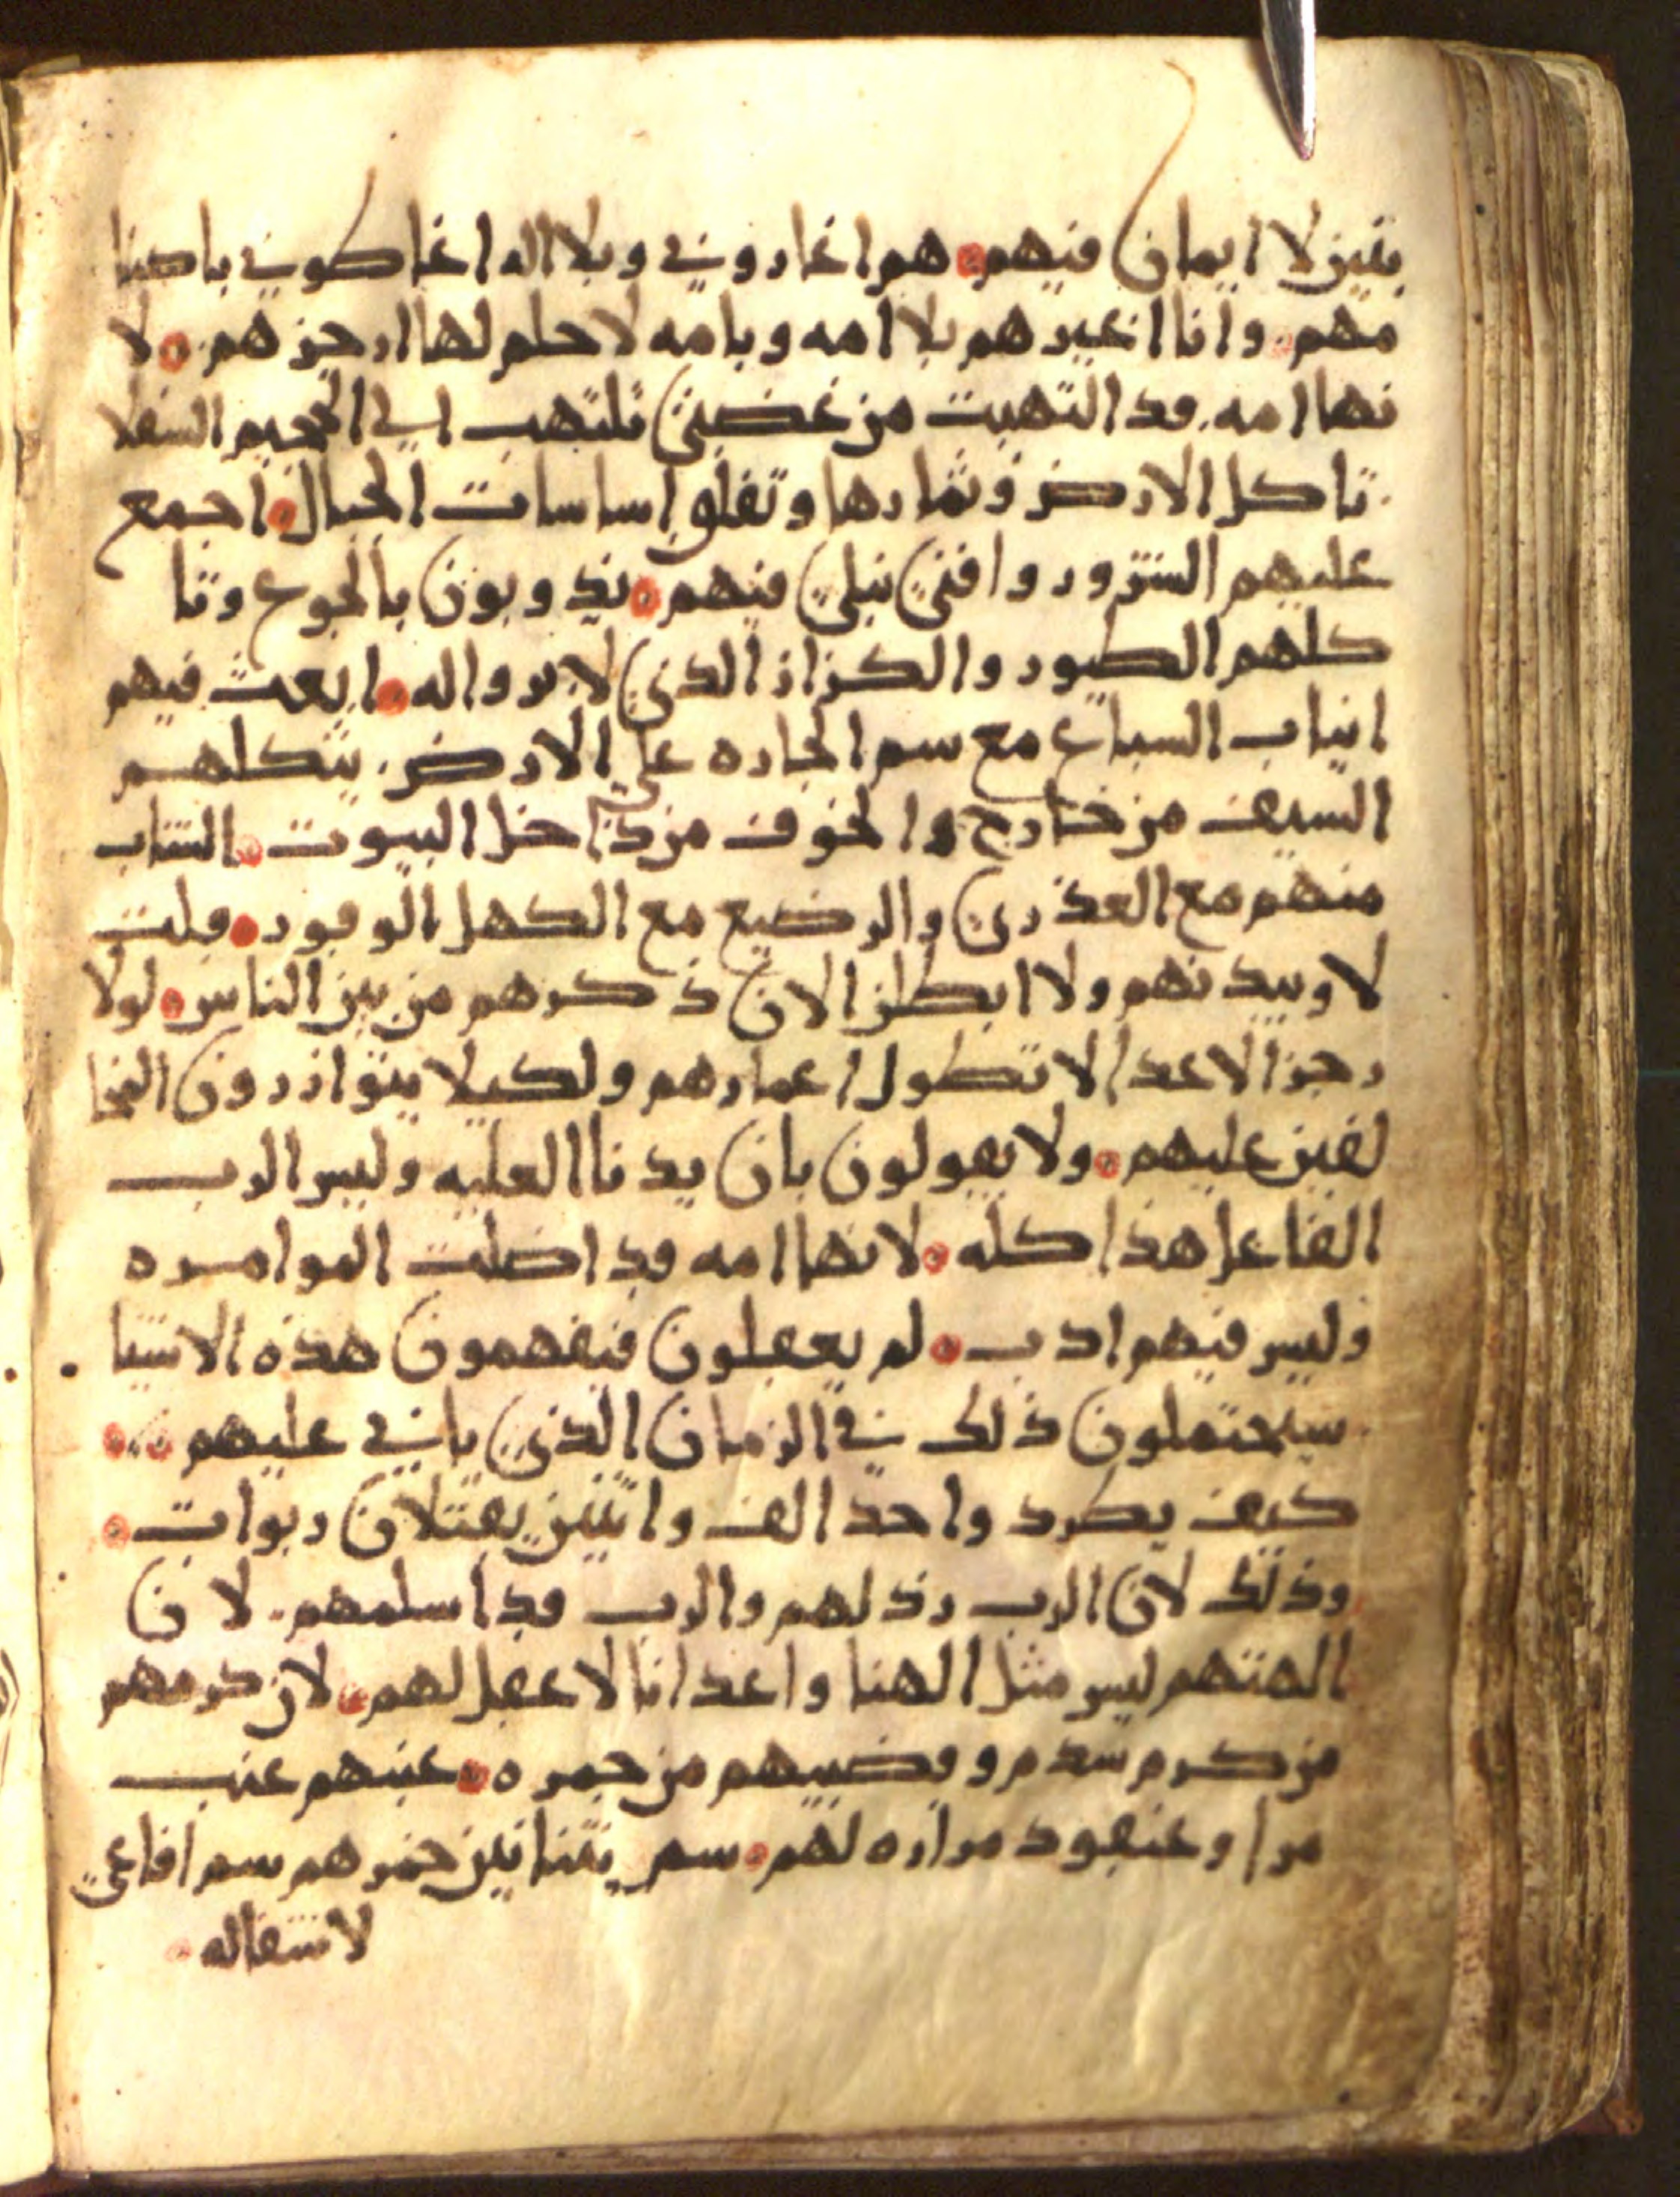 بنين لا ايمان فيهم هم اغاروني وبلا اله اغاظوني باصنا
مهم وانا اغيرهم بلا امه وبامه لا حلم لها ارجزهم لا
نها امه قد التهبت من غضبي تلتهب الي الجحيم السفلا
تاكل الارض وثمارها وتقلق اساسات الجبال اجمع
عليهم الشرور وافني نبلي فيهم يذوبون بالجوع وتا
كلهم الطيور والكزاز الذي لا بروا له ابعث فيهم
انياب السباع مع سم الجاره علي الارض يثكلهم
السيف من خارج والخوف من داخل البيوت الشاب
منهم مع العذري والرضيع مع الكهل الوقور قلت
لاوبيدنهم ولا ابطلن الان ذكرهم من بين الناس لولا
رجز الاعدا لا تطول اعمارهم ولكيلا يتوازرون المخا
لفين عليهم ولا يقولون بان يدنا العليه وليس الرب
الفاعل هذا كله لانها امه قد اضلت الموامره
وليس فيهم ادب لم يعقلون فيفهمون هذه الاشيا
سيحتملون ذلك في الزمان الذي ياتي عليهم
كيف يطرد واحد الف واثنين يقتلان ربوات
وذلك لان الرب رذلهم والرب قد اسلمهم لان
الهتهم ليس مثل الهنا واعدانا لا عقل لهم لان كرمهم
من كرم سدم وقضبيهم من جمره عنبهم عنب
مرا وعنقود مراره لهم سم تنانين خمرهم سم افاعي
لا شفا له